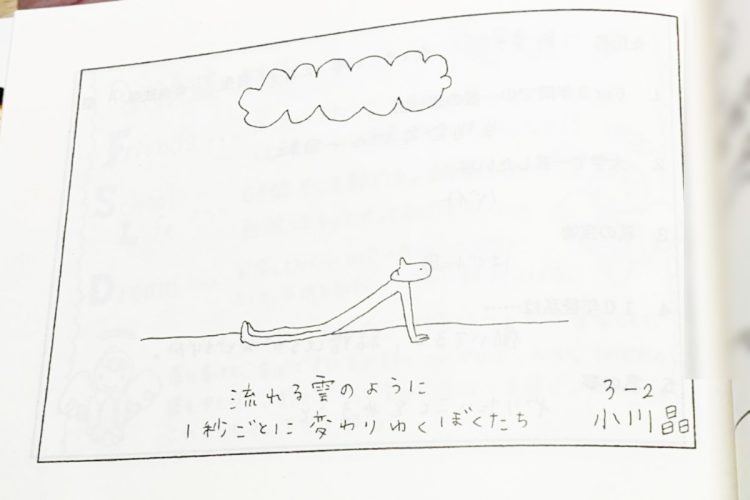 流れる雲のように
1秒ごとに変わりゆくぼくたち
3-2
小川晶